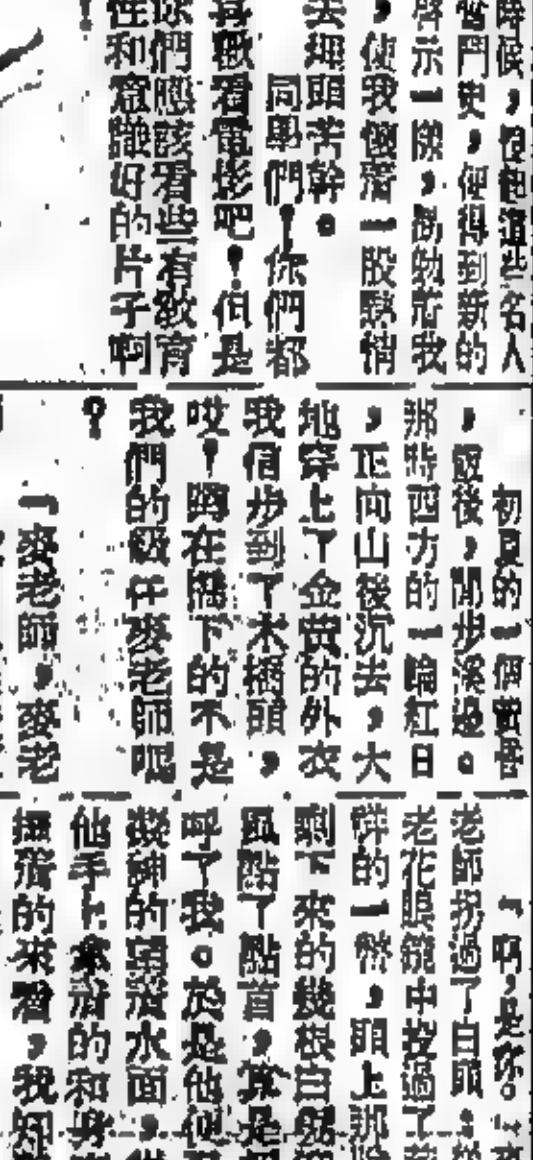 時候，從他這些名人
奮鬥史，便得到新的
啓示一般，鼓勵着我
，使我懷着一股熱情
去埋頭苦幹。
同學們！你們都
喜歡看電影吧！但是
你們應該看些有教育
性和意識好的片子啊
！
初夏的一個黃昏
，飯後，閒步溪邊。
那時西方的一輪紅日
，正向山後沉去，大
地穿上了金黄的外衣
我信步到了木橋頭，
哎！蹲在橋下的不是
我們的級任麥老師呢
？
「麥老師，麥老
「啊，是你。
老師拐過了白頭，從
老花眼鏡中投過了
祥的一瞥，頭上那
剩下來的幾根白
風點了點首，算是
呼了我。於是他
凝神的望着水面，
他手上拿着的和身
攝着的來看，我知